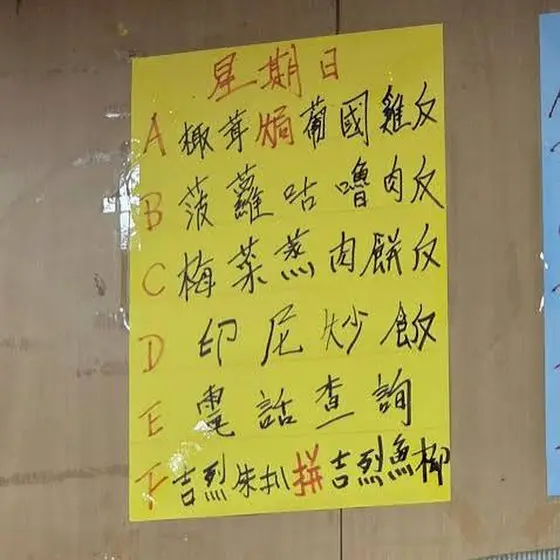 星期日
A 椰茸焗葡國雞反
B 菠蘿咕嚕肉反
C 梅菜蒸肉餅反
D 印尼炒飯
E 電話查詢
F 吉烈朱扒拼吉烈魚柳